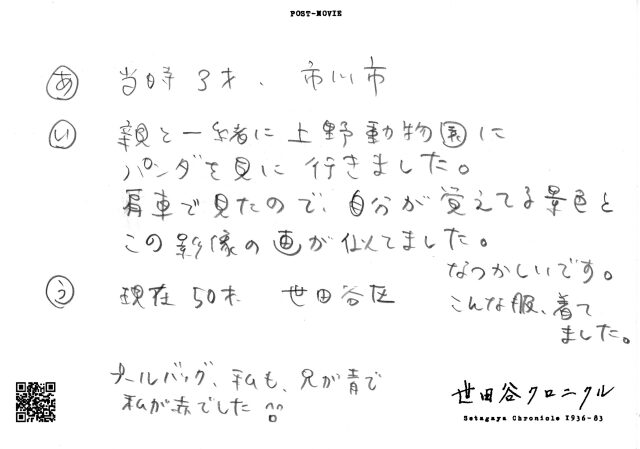 POST-MOVIE
あ 当時3才、市川市
い 親と一緒に上野動物園に
パンダを見に行きました。
肩車で見たので、自分が覚えてる景色と
この影像の画が似てました。
なつかしいです。
う 現在50才 世田谷区
こんな服、着て
ました。
プールバッグ、私も、兄が青で
私が赤でした
世田谷クロニクル
Setagaya Chronicle 1936-83